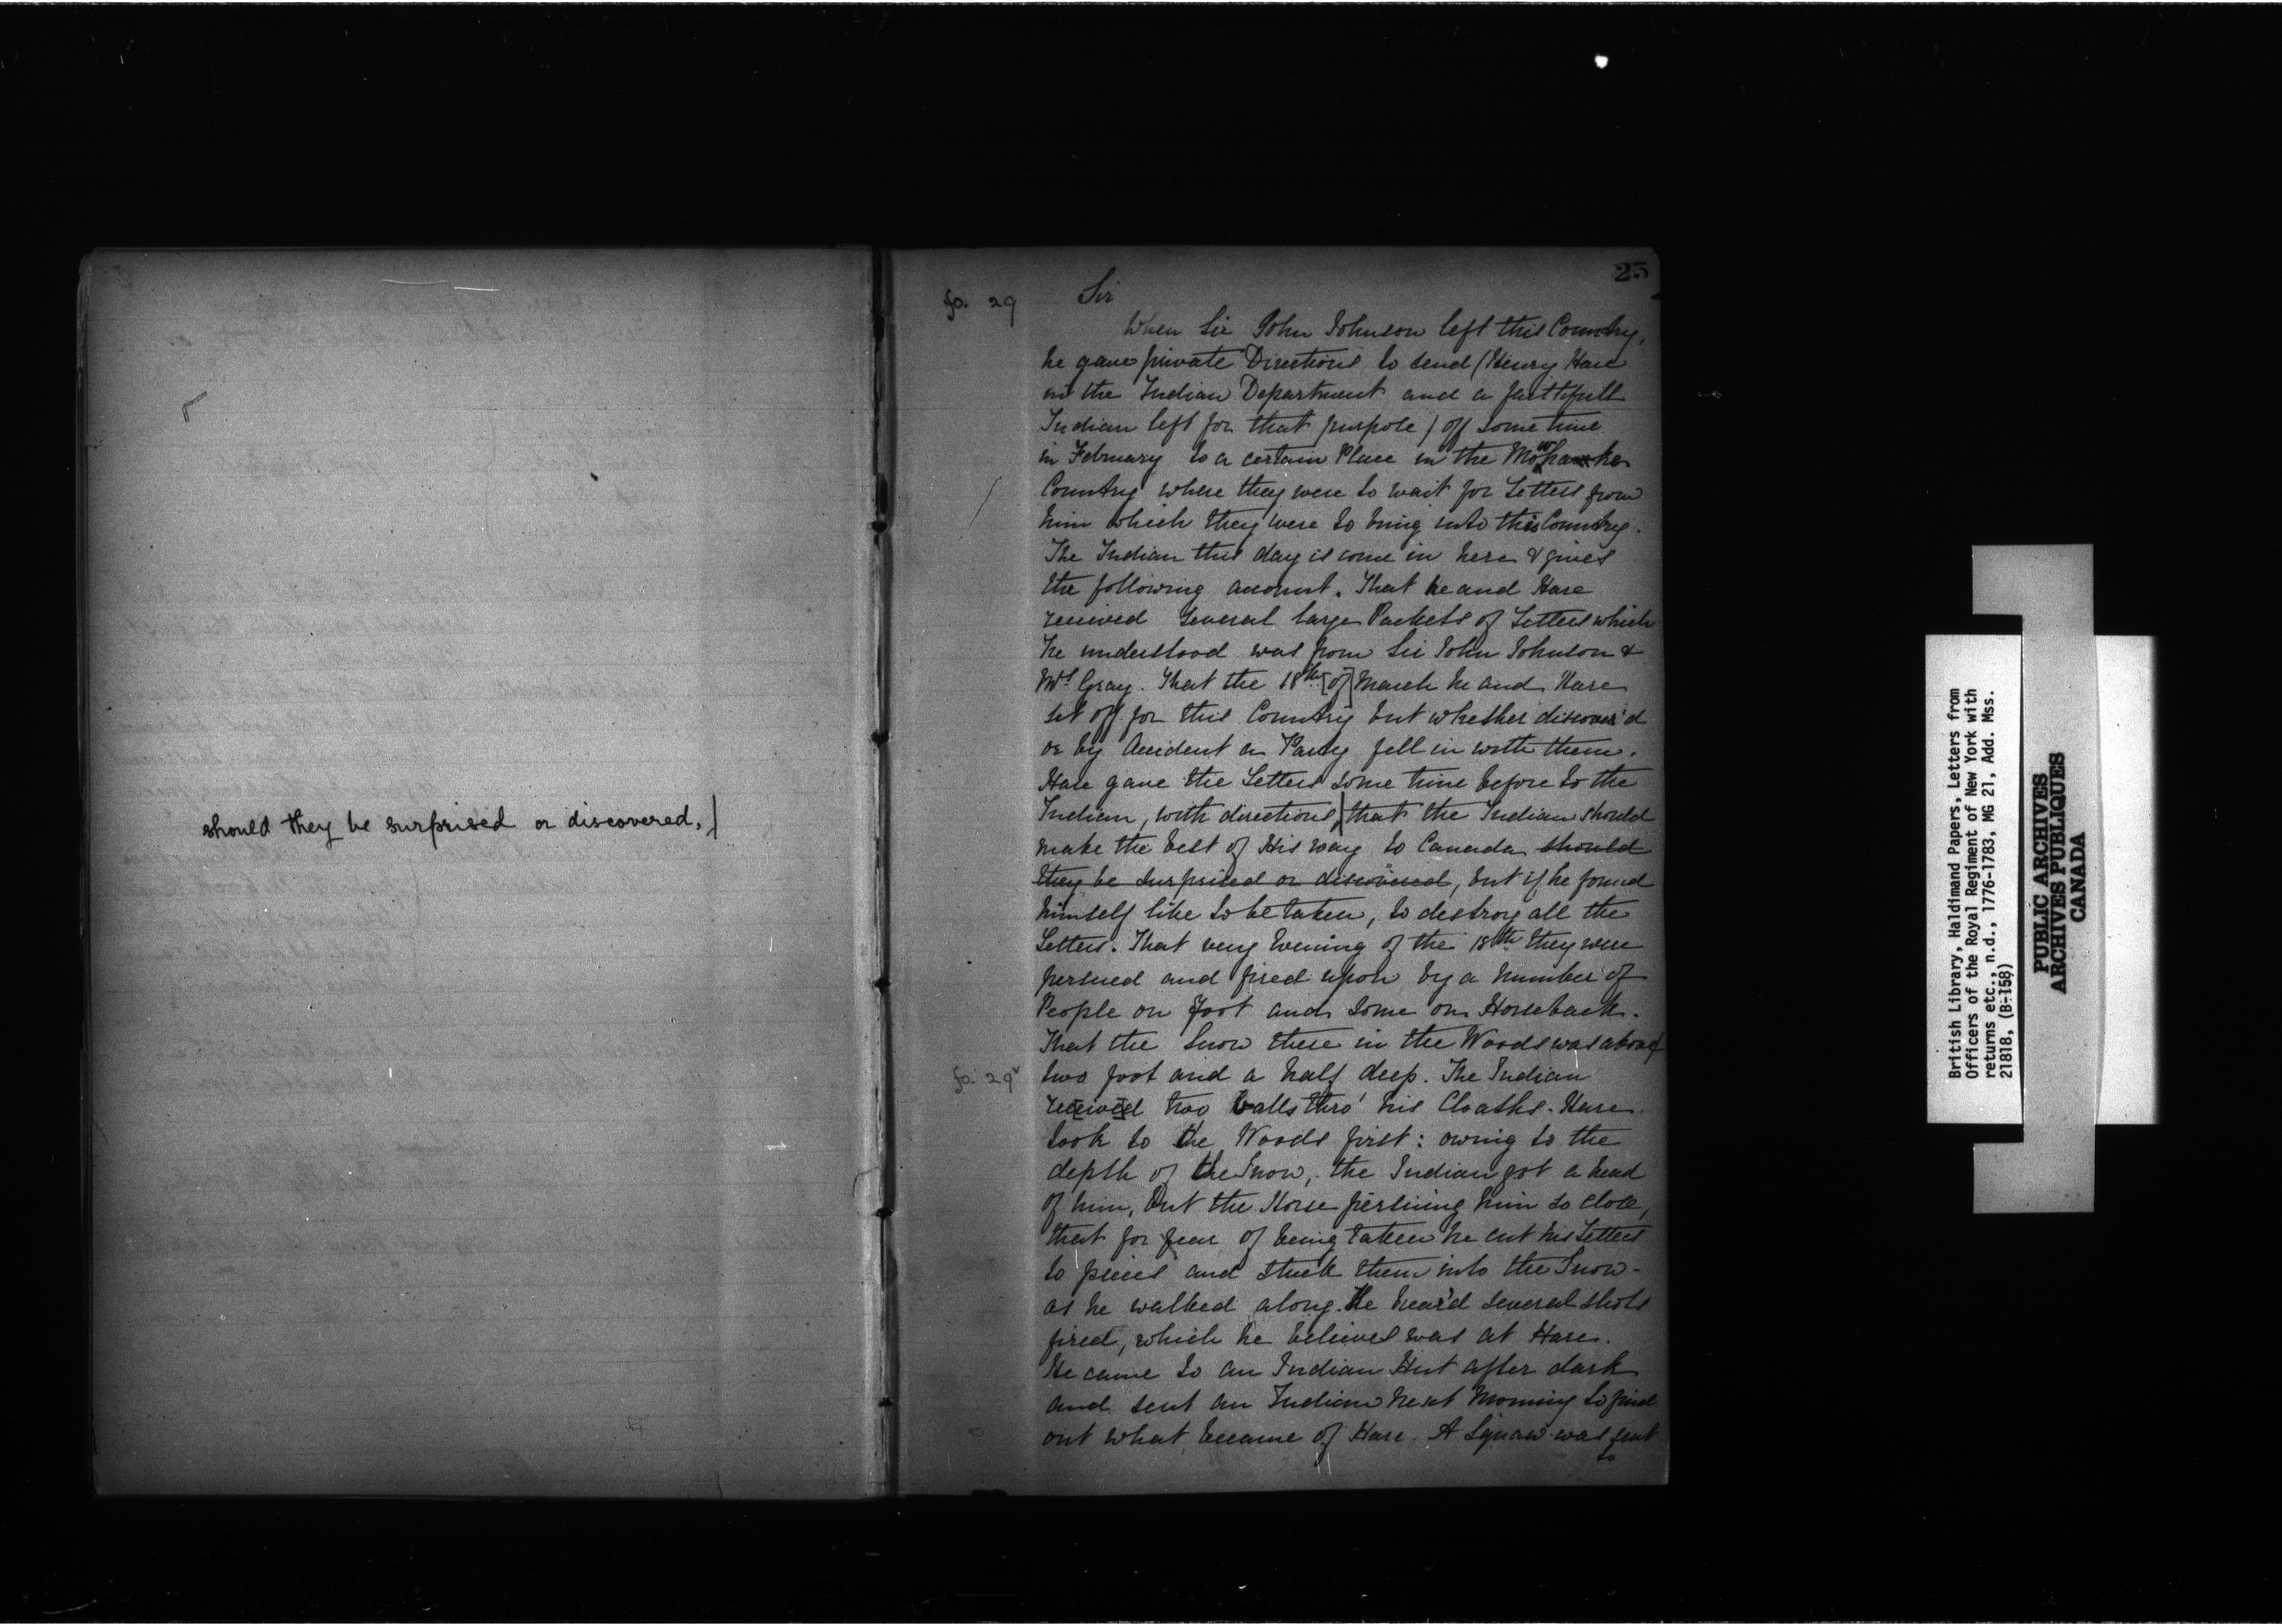 should they be surprised or discovered,/
25
fo. 29
Sir
When Sir John Johnson left this Country,
he gave private Directions to send (Henry Hare
in the Indian Department and a faithfull
Indian left for that purpose) off some time
in February to a certain Place in the Mohawke
Country where they were to wait for Letters from
him which they were to bring into this Country.
The Indian this day is come in here & gives
the following account. That he and Hare
received several large Packets of Letters which
he understood was from Sir John Johnson &
Mrs Gray. That the 18th [of] March he and Hare
set off for this Country but whether discover'd
or by Accident a Party fell in with them.
Hare gave the Letters some time before to the
Indian, with directions,/ that the Indian should
make the best of His way to Canada should
they be surprised or discovered, but if he found
himself like to be taken, to destroy all the
Letters. That very Evening of the 18th they were
persued and fired upon by a number of
People on Foot and some on Horseback.
That the Snow there in the Woods was above
fo. 29v
two foot and a half deep. The Indian
received two balls thro' his Cloaths. Hare
took to the Woods first: owing to the
depth of the Snow, the Indian got a head
of him, but the Horse persuing him so close,
that for fear of being taken he cut his Letters
to pieces and stuck them into the Snow-
as he walked along. He hear'd several shots
fired, which he believes was at Hare.
He came to an Indian Hut after dark
and sent an Indian next Morning to find
out what became of Hare. A Squaw was sent
to
British Library, Haldimand Papers, Letters from
Officers of the Royal Regiment of New York with
returns etc., n.d., 1776-1783, MG 21, Add. Mss.
21818, (B-158)
PUBLIC ARCHIVES
ARCHIVES PUBLIQUES
CANADA